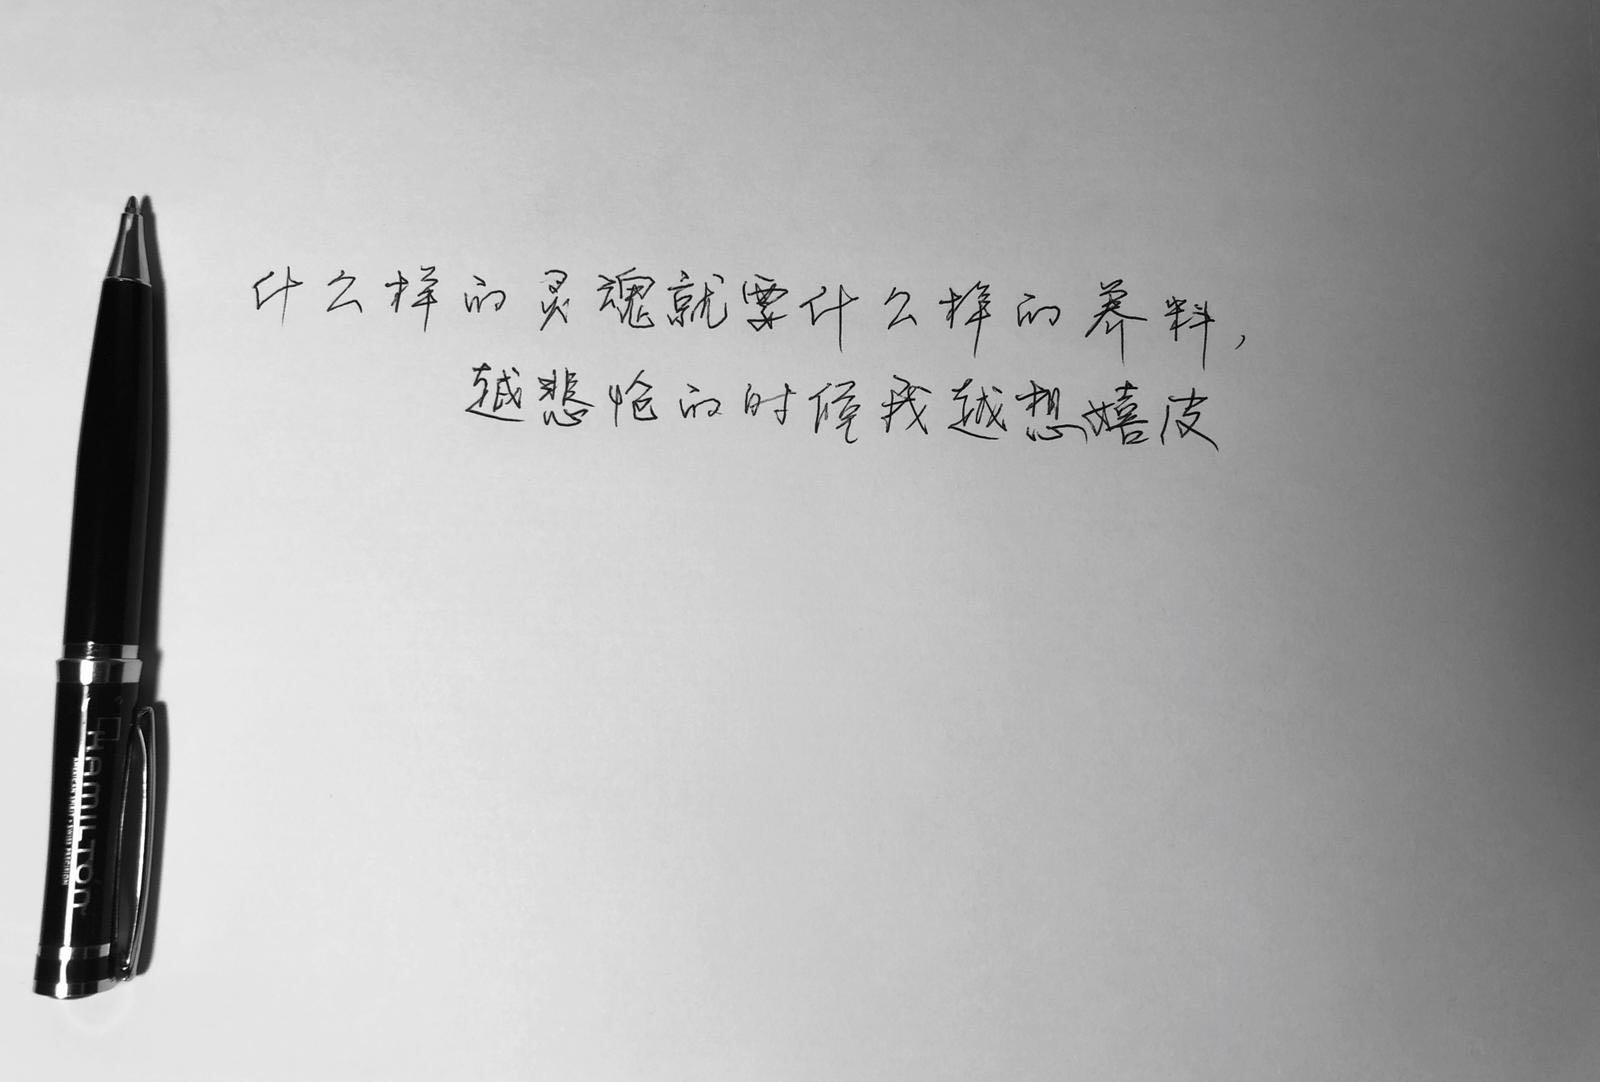 什么样的灵魂就要什么样的养料，
越悲怆的时候我越想嬉皮
HAMILTON